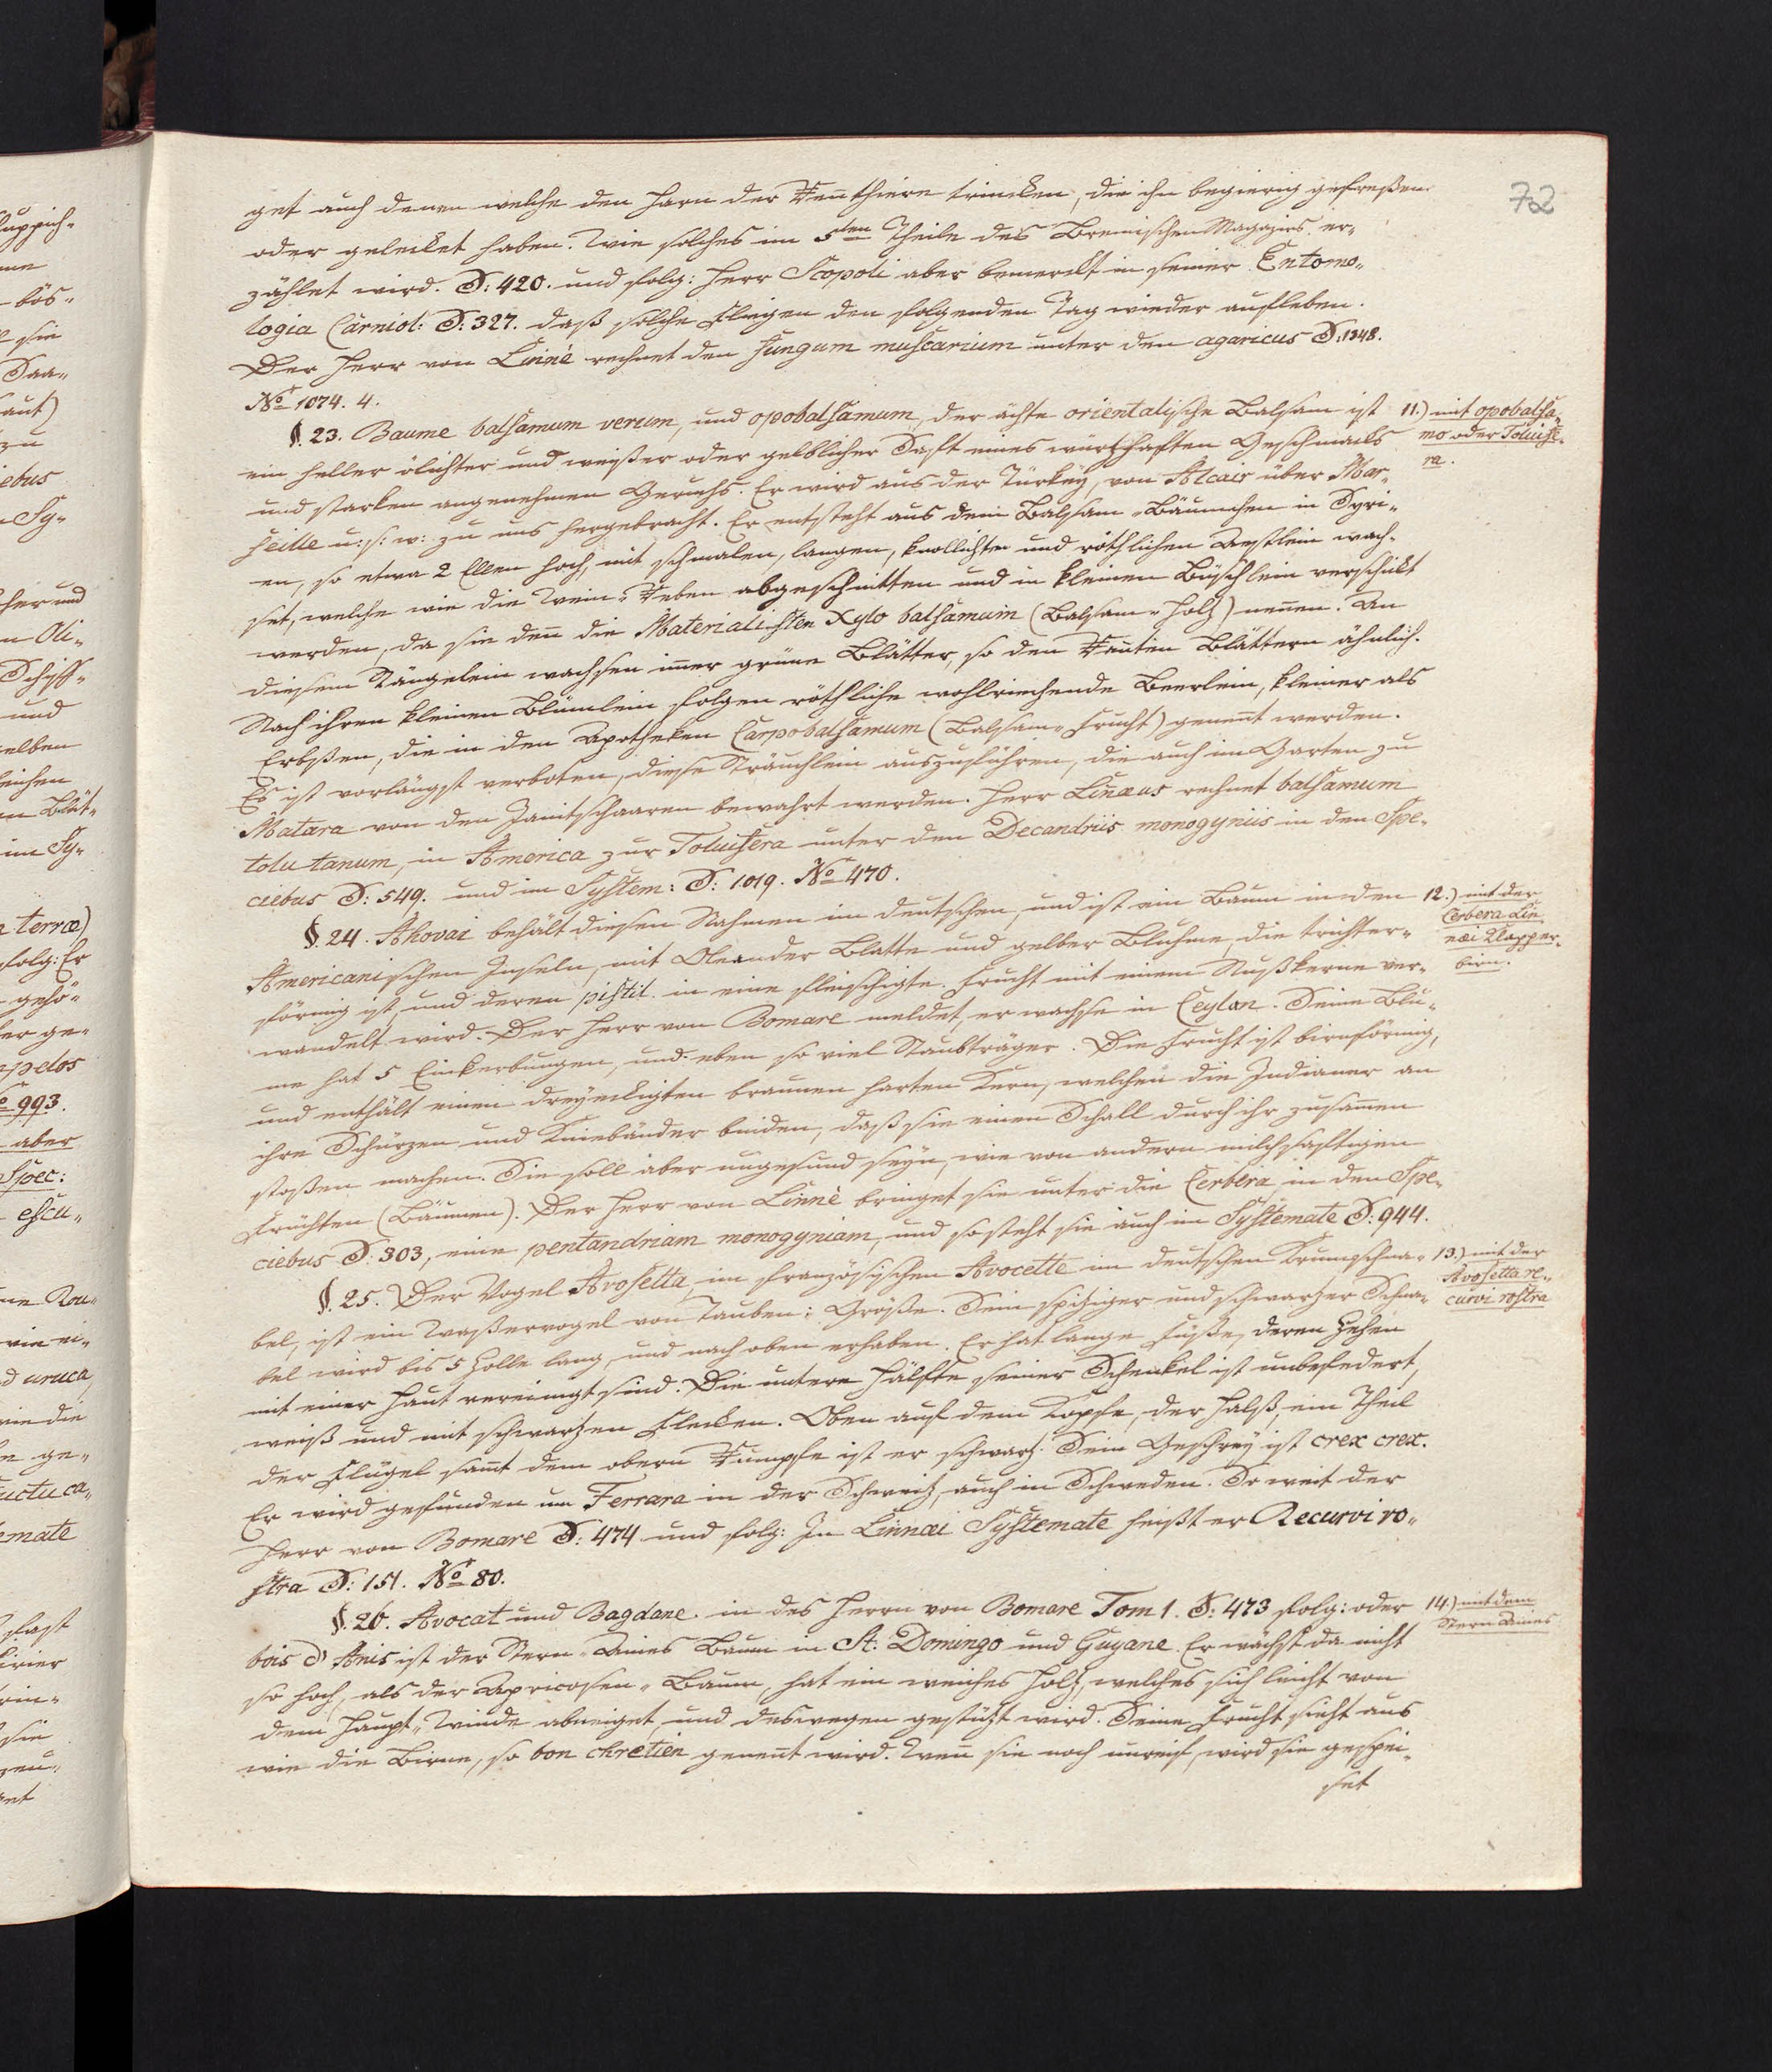 72
get auch denen welche den Harn der Rennthiere trincken, die ihn begierig gefreßen
oder gelecket haben. Wie solches im 5ten Theile des Bremischen Magazins er„
zählet wird. S: 420. und folg: Herr Scopoli aber bemerckt in seiner Entomo„
logia Carniol: S: 327. daß solche Fliegen den folgenden Tag wieder aufleben.
Der Herr von Linnè rechnet den Fungum muscarium unter den agaricus S: 1348.
No 1074. 4.
§. 23. Baume balsamum verum, und opobalsamum, der ächte orientalische Balsam ist
11.) mit opobalsa„
mo oder Toluife„
ra.
ein heller ölichter und weißer oder gelblicher Saft eines würtzhaften Geschmacks
und starken angenehmen Geruchs. Er wird aus der Türkey, von Alcair über Mar„
seille u: s: w: zu uns hergebracht. Er entsteht aus dem Balsam „ Bäumchen in Syri„
en, so etwa 2 Ellen hoch, mit schmalen, langen, knollichten und röthlichen Aestlein wach„
set, welche wie die Wein „ Reben abgeschnitten und in kleinen Büschlein verschickt
werden, da sie den̄ die Materialisten Xylo balsamum (Balsam „ Holtz) nen̄en. An
diesem Stängelein wachsen im̄er grüne Blätter, so den Rauten Blättern ähnlich.
Nach ihren kleinen Blümlein folgen röthliche wohlriechende Beerlein, kleiner als
Erbßen, die in den Apotheken Carpobalsamum (Balsam „ Frucht) genen̄t werden.
Es ist vorlängst verboten, diese Sträuchlein auszuführen, die auch im Garten zu
Matara von den Janitschaaren bewahrt werden. Herr Linæus rechnet balsamum
tolu tanum, in America zur Toluifera unter den Decandriis monogyniis in den Spe„
ciebus S: 549. und im System: S: 1019. No 470.
§. 24. Ahovai behält diesen Nahmen im deutschen, und ist ein Baum in den
12.) mit der
Cerbera Lin„
næi Klapper„
birn.
Americanischen Inseln, mit Oleander Blatte und gelber Bluhme, die trichter„
förmig ist, und deren pistil. in eine fleischigte Frucht mit einem Nußkerne ver„
wandelt wird. Der Herr von Bomare meldet, er wachse in Ceylan. Seine Blu„
me hat 5 Einkerbungen, und eben so viel Staubträger. Die Frucht ist birnförmig,
und enthält einen dreyeckigten braunen harten Kern, welchen die Indianer an
ihre Schürzen und Kniebänder binden, daß sie einen Schall durch ihr zusam̄en
stoßen machen. Sie soll aber ungesund seyn, wie von andern milchsaftigen
Früchten (Bäumen). Der Herr von Linnè bringet sie unter die Cerbera in den Spe„
ciebus S: 303, eine pentandriam monogyniam, und so steht sie auch im Systemate S: 944.
§. 25. Der Vogel Avosetta, im französischen Avocette im deutschen Krumschna„
13.) mit der
Avosetta re„
curvi rostra
bel, ist ein Waßervogel von Tauben: Größe. Sein spitziger und schwartzer Schna„
bel wird bis 5 Zolle lang, und nach oben erhaben. Er hat lange Füße, deren Zehen
mit einer Haut vereinigt sind. Die untere Hälfte seiner Schenkel ist unbefedert,
weiß und mit schwartzen Flecken. Oben auf dem Kopfe, der Halß, ein Theil
der Flügel sam̄t dem obern Rumpfe ist er schwartz. Sein Geschrey ist crex crex.
Er wird gefunden um Ferrara in der Schweitz, auch in Schweden. So weit der
Herr von Bomare S: 474 und folg: In Linnæi Systemate heißt er Recurviro„
stra S: 151. No 80.
§. 26. Avocat und Bagdane. in des Herrn von Bomare Tom 1. S: 473 folg: oder
14.) mit dem
Stern Anies
bois d' Anis ist der Stern „ Anies Baum in St: Domingo und Guyane. Er wächst da nicht
so hoch, als der Apricosen „ Baum, hat ein weiches Holtz, welches sich leicht von
dem Haupt „ Winde abneiget, und deswegen gestützt wird. Seine Frucht sieht aus
wie die Birne, so bon chretien genen̄t wird. Wen̄ sie noch unreif, wird sie gespei„
set